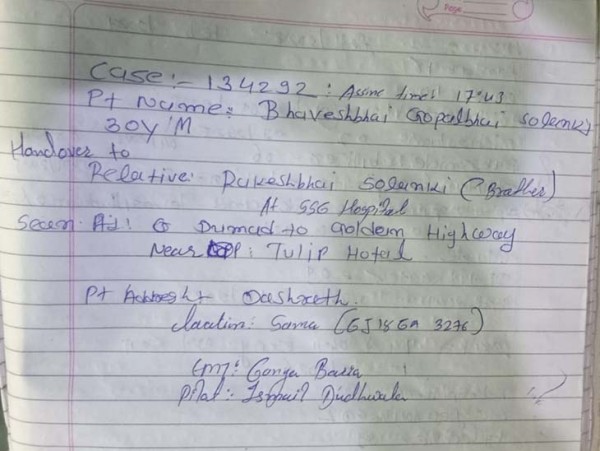 Page
Case:- 134292: Assine times 17:43
Pt Name: Bhaveshbhai Gopalbhai Solanki
30Y/M
Handover to
Relative: Rakeshbhai Solanki (Brother)
At SSG Hospital
Dumad to Goldern Highway
Near : Tulip Hotal
Pt Address:- Dashrath.
location: Sama (GJ18GA 3276)
EMT: Ganga Baria
Pilot: Ismail Dudhwala